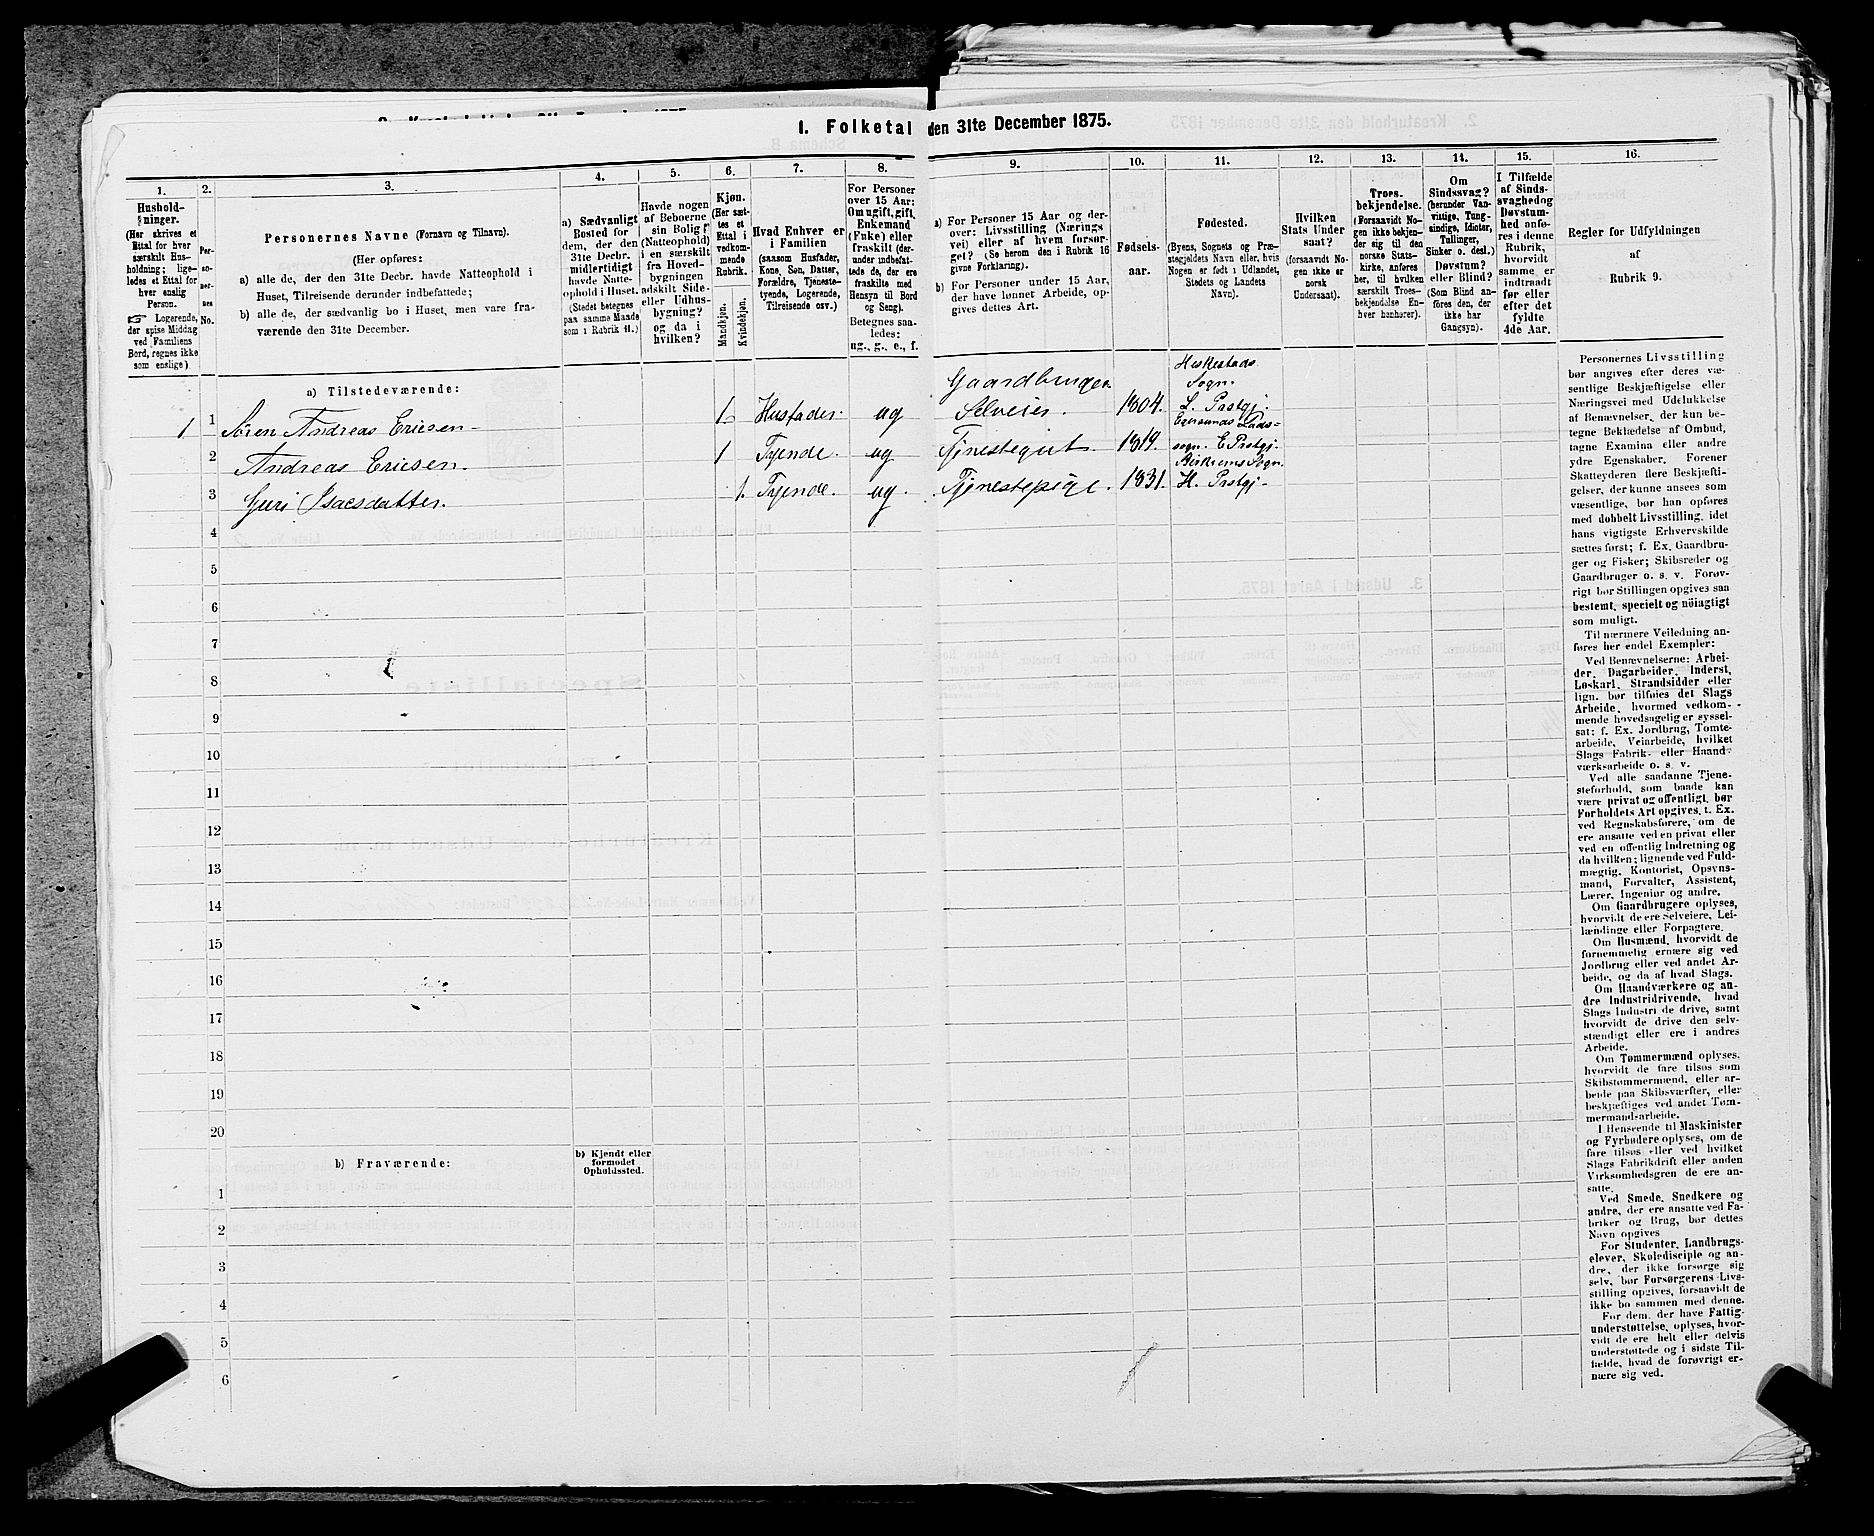 1. Folketal den 31te December 1875.
1.
2.
3.
4.
5.
6.
7.
8.
9.
10.
11.
12.
13.
14.
15.
16.
Hushold-
ninger.
(Her skrives et
Ettal for hver
særskilt Hus-
holdning; lige-
ledes et Ettal for
hver enslig
Person.
☞ Logerende,
der spise Middag
ved Familiens
Bord, regnes ikke
som enslige)
Per-
so-
ner-
nes
No.
Personernes Navne (Fornavn og Tilnavn).
(Her opføres:
a) alle de, der den 31te Decbr. havde Natteophold i
Huset, Tilreisende derunder indbefattede;
b) alle de, der sædvanlig bo i Huset, men vare fra-
værende den 31te December.
a) Sædvanligt
Bosted for
dem, der den
31te Decbr.
midlertidigt
havde Natte-
ophold i Huset.
(Stedet betegnes
paa samme Maade
som i Rubrik 11.)
Havde nogen
af Beboerne
sin Bolig
(Natteophold)
i en særskilt
fra Hoved-
bygningen
adskilt Side-
eller Udhus-
bygning?
og da i
hvilken?
Kjøn.
(Her sæt-
tes et
Ettal i
vedkom-
mende
Rubrik.
Mandkjøn.
Kvindekjøn.
Hvad Enhver er
i Familien
(saasom Husfader,
Kone, Søn, Datter,
Forældre, Tjeneste-
tyende, Logerende,
Tilreisende osv.)
For Personer
over 15 Aar:
Om ugift, gift,
Enkemand
(Enke) eller
fraskilt (der-
under indbefat-
tede de, der ere
fraskilte med
Hensyn til Bord
og Seng).
Betegnes saa-
ledes:
ug., g., e., f.
a) For Personer 15 Aar og der-
over: Livsstilling (Nærings
vei) eller af hvem forsør-
get? (Se herom den i Rubrik 16
givne Forklaring).
b) For Personer under 15 Aar,
der have lønnet Arbeide, op-
gives dettes Art.
Fødsels-
aar.
Fødested.
(Byens, Sognets og Præ-
stegjeldets Navn eller, hvis
Nogen er født i Udlandet,
Stedets og Landets
Navn).
Hvilken
Stats Under
saat?
(foraavidt No-
gen ikke er
norsk
Undersaat).
Troes-
bekjendelse.
(Forsaavidt No-
gen ikke bekjen-
der sig til den
norske Stats-
kirke, anføres
her, til hvilken
særskilt Troes-
bekjendelse En-
hver henhører).
Om
Sindssvag?
(herunder Van-
vittige, Tung-
sindige, Idioter,
Tullinger,
Sinker o. desl.)
Døvstum?
eller Blind?
(Som Blind an-
føres den, der
ikke har
Gangsyn).
I Tilfælde
af Sinds-
svaghed og
Døvstum-
hed anfø-
res i denne
Rubrik,
hvorvidt
samme er
indtraadt
før eller
efter det
fyldte
4de Aar.
Regler for Udfyldningen
af
Rubrik 9.
a) Tilstedeværende:
1 1 Søren Andreas Ericsen 1 Husfader ug Gaardbruger Selveier. 1804. Heskestads Sogn. L. Prstgj.
2 Andreas Ericsen. 1 Tyende. ug Tjenestegut 1819. Egersunds Lands= sogn. E Prstgj.
3 Guri Isacsdatter. 1. Tyende. ug. Tjenestepige. 1831. Birkrems Sogn. H. Prstgj.
4
5
6
7
8
9
10
11
12
13
14
15
16
17
18
19
20
b) Fraværende:
b) Kjendt eller
formodet
Opholdssted.
1
2
3
4
5
6
Personernes Livsstilling
bør angives efter deres væ-
sentlige Beskjæftigelse eller
Næringsvei med Udelukkelse
af Benævnelser, der kun be-
tegne Beklædelse af Ombud,
tagne Examina eller andre
ydre Egenskaber. Forener
Skatteyderen flere Beskjæfti-
gelser, der kunne ansees som
væsentlige, bør han opføres
med dobbelt Livsstilling, idet
hans vigtigste Erhvervskilde
sættes først; f. Ex. Gaardbru-
ger og Fisker; Skibsreder og
Gaardbruger o. s. v. Forøv-
rigt bør Stillingen opgives saa
bestemt, specielt og nöiagtigt
som muligt.
Til nærmere Veiledning an-
føres her endel Exempler:
Ved Benævnelserne: Arbei-
der, Dagarbeider, Inderst,
Løskarl, Strandsidder eller
lign. bør tilføies det Slags
Arbeide, hvormed vedkom-
mende hovedsagelig er syssel-
sat; f. Ex. Jordbrug, Tomte-
arbeide, Veiarbeide, hvilket
Slags Fabrik- eller Haand
værksarbeide o. s. v.
Ved alle saadanne Tjene-
steforhold, som baade kan
være privat og offentligt, bør
Forholdets Art opgives, t. Ex.
ved Regnskabsførere, om de
ere ansatte ved en privat eller
ved en offentlig Indretning og
da hvilken; lignende ved Fuld-
mægtig, Kontorist, Opsyns-
mand, Forvalter, Assistent,
Lærer, Ingeniør og andre.
Om Gaardbrugere oplyses,
hvorvidt de ere Selveiere, Lei-
lændinge eller Forpagtere.
Om Husmænd, hvorvidt de
fornemmelig ernære sig ved
Jordbrug eller ved andet Ar-
beide, og da af hvad Slags.
Om Haandværkere og an-
dre Industridrivende, hvad
Slags Industri de drive, samt
hvorvidt de drive den selv-
stændigt eller ere i andres
Arbeide.
Om Tømmermænd oplyses,
hvorvidt de fare tilsøs som
Skibstømmermænd, eller ar-
beide paa Skibsværfter, eller
beskjæftiges ved andet Tøm-
mermand-arbeide.
I Henseende til Maskinister
og Fyrbødere oplyses, om de
fare tilsøs eller ved hvilket
Slags Fabrikdrift eller anden
Virksomhedsgren de ere an-
satte.
Ved Smede, Snedkere og
andre, der ere ansatte ved Fa-
briker og Brug, bør dettes
Navn opgives
For Studenter, Landbrugs-
elever, Skoledisciple og an-
dre, der ikke forsørge sig
selv, bør Forsørgerens Livs-
stilling opgives, forsaavidt de
ikke bo sammen med denne.
For dem, der have Fattig-
understøttelse, oplyses, hvor-
vidt de ere helt eller delvis
understøttede og i sidste Til-
fælde, hvad de forøvrigt er-
nære sig ved.